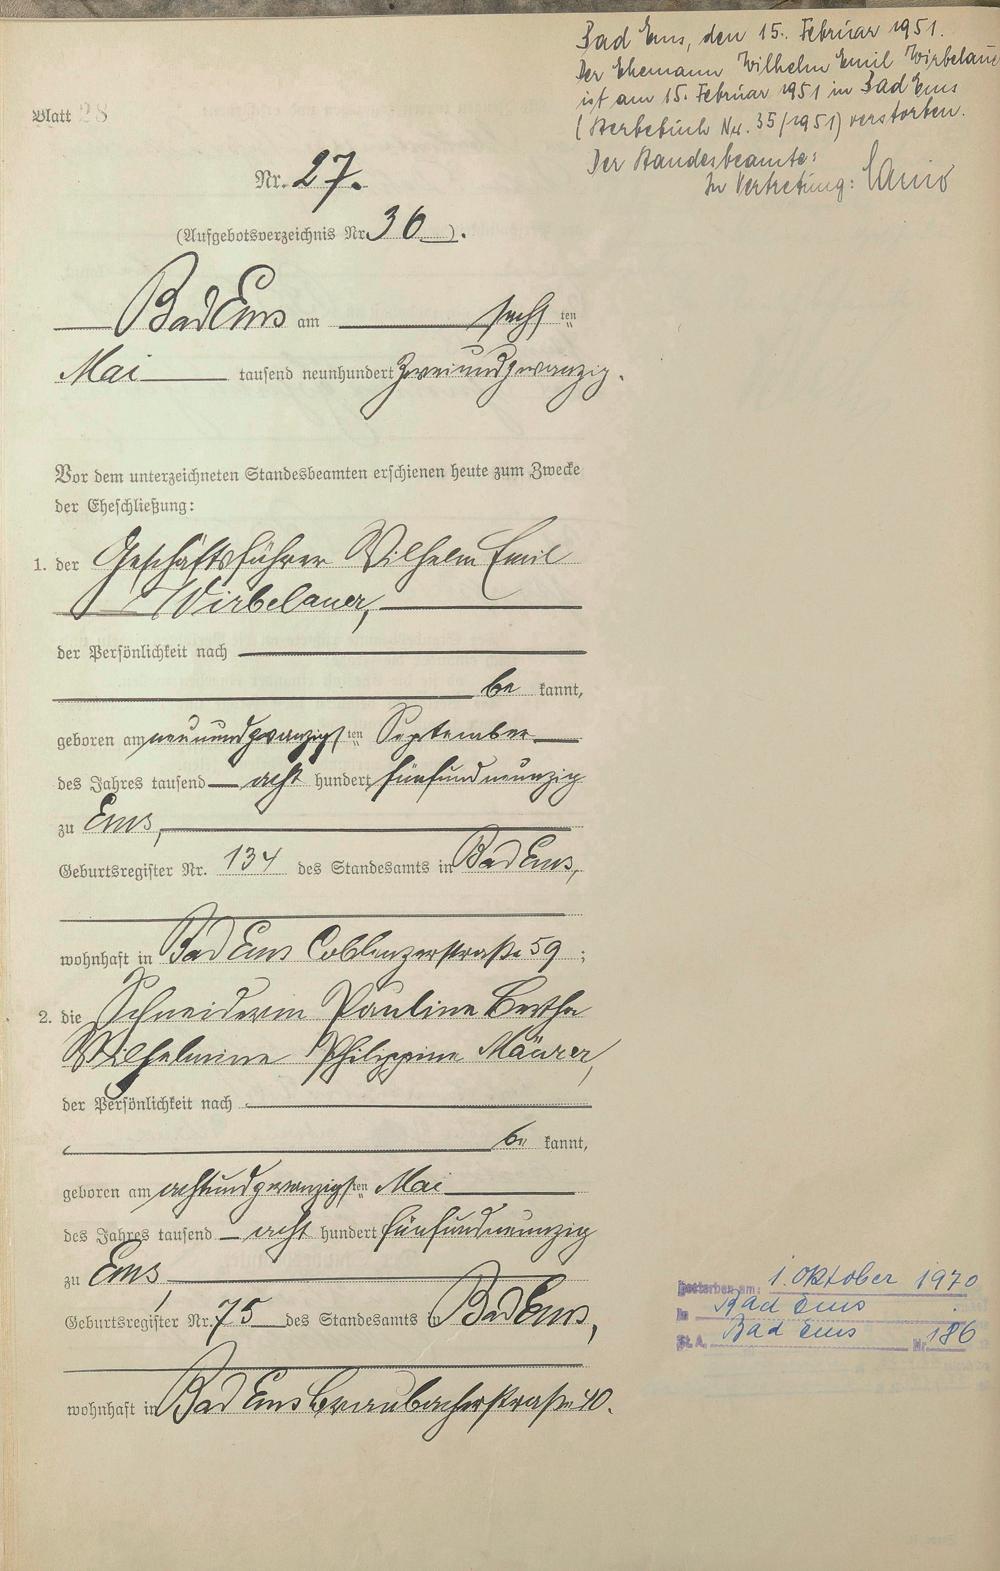 Bad Ems, den 15. Februar 1951.
Der Ehemann Wilhelm Emil Wirbelauer
ist am 15. Februar 1951 in Bad Ems
(Sterbebuch Nr. 35/1951) verstorben.
Der Standesbeamte:
In Vertretung:
Blatt 28
Nr. 27.
(Aufgebotsverzeichnis Nr. 36).
Bad Ems am sechsten
Mai tausend neunhundert zweiundzwanzig.
Vor dem unterzeichneten Standesbeamten erschienen heute zum Zwecke
der Eheschließung:
1. der Geschäftsführer Wilhelm Emil
Wirbelauer,
der Persönlichkeit nach
be kannt,
geboren am neunundzwanzigsten September
des Jahres tausend acht hundert fünfundneunzig
zu Ems,
Geburtsregister Nr. 134 des Standesamts in Bad Ems,
wohnhaft in Bad Ems Coblenzerstraße 59;
2. die Schneiderin Pauline Bertha
Wilhelmine Philippine Mäurer,
der Persönlichkeit nach
be kannt,
geboren am achtundzwanzigsten Mai
des Jahres tausend acht hundert fünfundneunzig
zu Ems,
Geburtsregister Nr. 75 des Standesamts in Bad Ems,
wohnhaft in Bad Ems Braubacherstraße 40.
Gestorben am: 1. Oktober 1970
in Bad Ems
St.A. Bad Ems Nr. 186